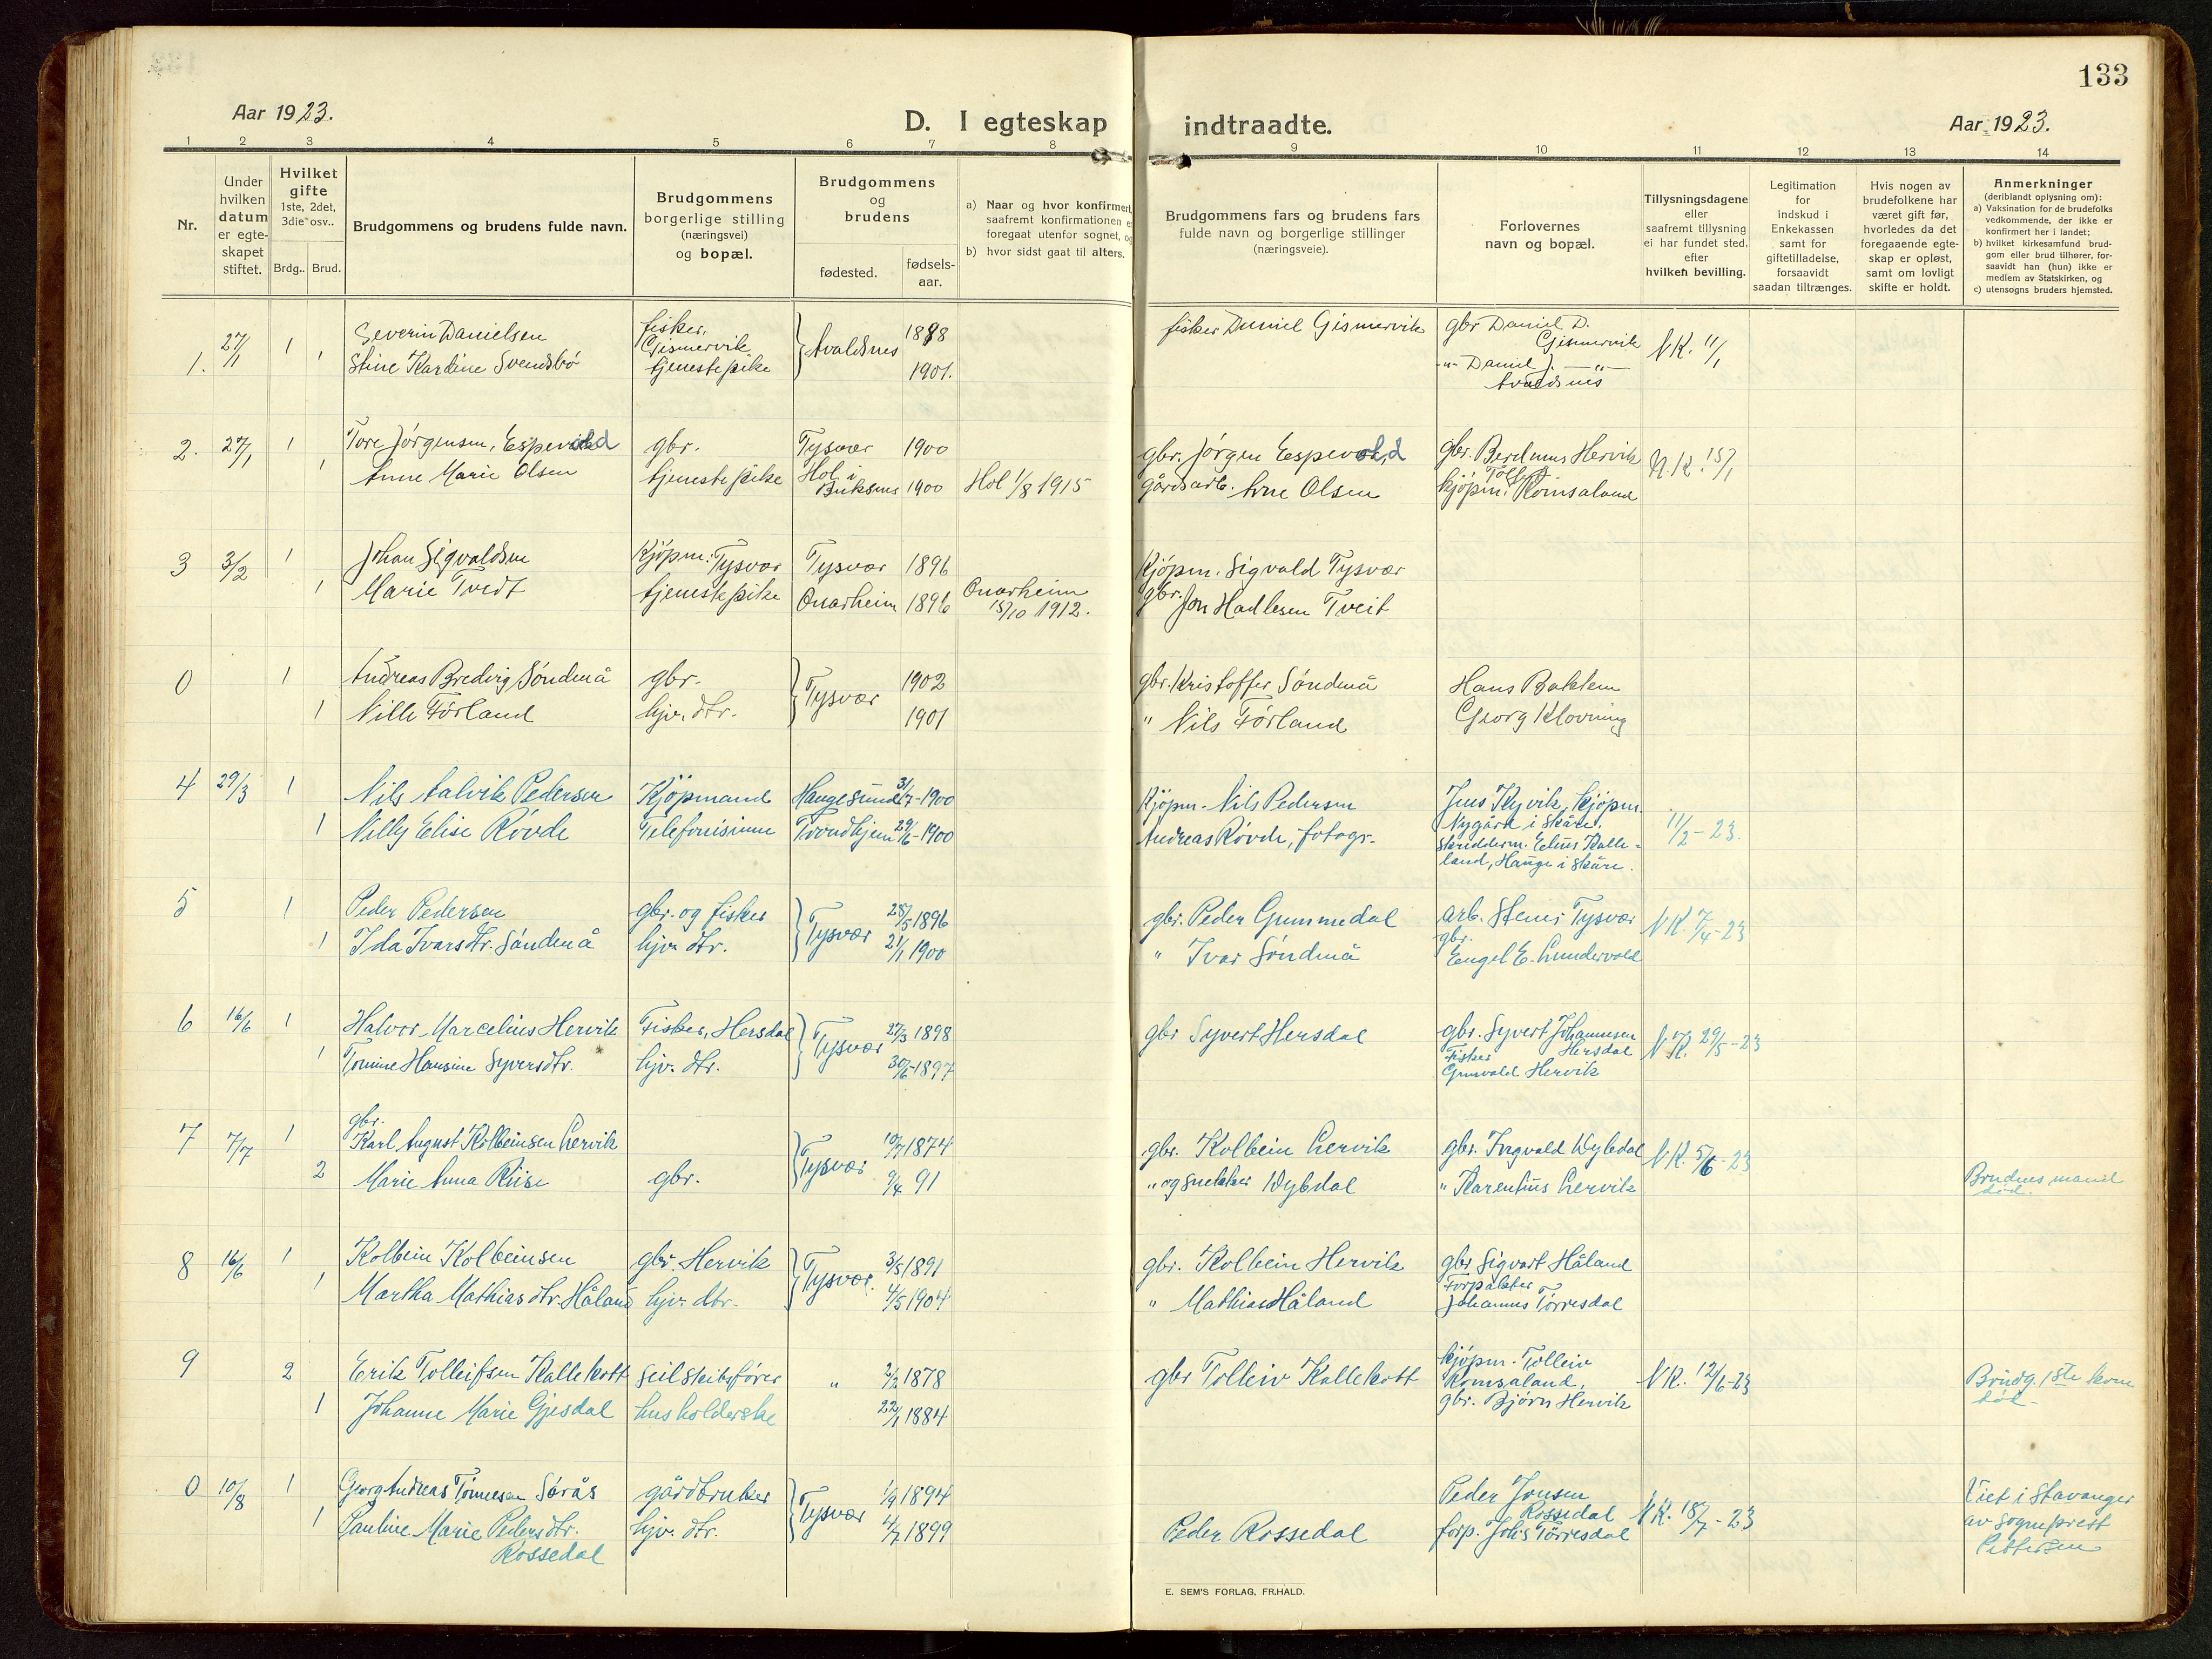 133
Aar 1923.
D. I egteskap indtraadte.
Aar 1923.
1 2 3 4 5 6 7 8 9 10 11 12 13 14
Nr.
Under hvilken datum er egte-skapet stiftet.
Hvilket gifte 1ste, 2det, 3die osv..
Brdg.. Brud.
Brudgommens og brudens fulde navn.
Brudgommens borgerlige stilling (næringsvei) og bopæl.
Brudgommens og brudens
fødested.
fødsels-aar.
a) Naar og hvor konfirmert, saafremt konfirmationen er foregaat utenfor sognet, og
b) hvor sidst gaat til alters.
Brudgommens fars og brudens fars fulde navn og borgerlige stillinger (næringsveie).
Forlovernes navn og bopæl.
Tillysningsdagene eller saafremt tillysning ei har fundet sted, efter hvilken bevilling.
Legitimation for indskud i Enkekassen samt for giftetilladelse, forsaavidt saadan tiltrænges.
Hvis nogen av brudefolkene har været gift før, hvorledes da det foregaaende egte-skap er opløst, samt om lovligt skifte er holdt.
Anmerkninger (deriblandt oplysning om):
a) Vaksination for de brudefolks vedkommende, der ikke er konfirmert her i landet;
b) hvilket kirkesamfund brud-gom eller brud tilhører, for-saavidt han (hun) ikke er medlem av Statskirken, og
c) utensogns bruders hjemsted.
1. 27/1 1 Severin Danielsen fisker, Gismervik Avaldsnes 1888 fisker Daniel Gismervik gbr Daniel D. Gismervik N.K. 11/1
1 Stine Karline Svendsbø tjenestepike 1901. -"- Daniel J. -"- Avaldsnes
2. 27/1 1 Tore Jørgensen, Espevold gbr. Tysvær 1900 gbr. Jørgen Espevold gbr. Berdinus Hervik N.K. 15/1
1 Anne Marie Olsen tjenestepike Hol i Buksnes 1900 Hol 1/8 1915 gårdsarb. Arne Olsen kjöpm. Tollef Romsaland
3 3/2 1 Johan Sigvaldsen Kjöpm. Tysvær Tysvær 1896 Kjöpm. Sigvald Tysvær
1 Marie Tvedt tjenestepike Onarheim 1896 Onarheim 15/10 1912. gbr. Jon Hadlesen Tveit
0 1 Andreas Bredvig Söndenå gbr. Tysvær 1902 gbr. Kristoffer Söndenå Hans Bakken
1 Nille Førland hjv. dtr. 1901 " Nils Førland Georg Klovning
4 29/3 1 Nils Aalvik Pedersen Kjöpmand Haugesund 31/7-1900 Kjöpm. Nils Pedersen Jens Kyvik, kjöpm. Nygård i Skåre. 11/2-23.
1 Nilly Elise Røvde Telefonisinne Trondhjem 29/6-1900 Andreas Røvde, fotogr. skredderm. Elius Kalle-land, Hauge i Skåre.
5 1 Peder Pedersen gbr. og fisker Tysvær 28/5 1896 gbr. Peder Gummedal arb. Stener Tysvær N.K. 7/4-23
1 Ida Ivarsdtr. Söndenå hjv. dtr. 21/1 1900 " Ivar Söndenå gbr. Engel E. Lundervold
6 16/6 1 Halvor Marcelius Hervik Fisker, Hersdal Tysvær 27/3 1898 gbr Syvert Hersdal gbr. Syvert Johannesen Hersdal N.K. 29/5-23
1 Tomine Hansine Syversdtr. hjv. dtr. 30/6-1897 Fisker Grunvald Hervik
7 7/7 1 gbr. Karl August Kolbeinsen Lervik Tysvær 10/7 1874 gbr. Kolbein Lervik gbr. Ingvald Dybdal N.K. 5/6-23
2 Marie Anna Riise gbr. 9/4 91 " og snekker Dybdal " Karentius Lervik Brudens mand død.
8 16/6 1 Kolbein Kolbeinsen gbr. Hervik Tysvær. 3/5 1891 gbr. Kolbein Hervik gbr Sigvart Håland
1 Martha Mathiasdtr. Håland hjv. dtr. 4/5 1904 " Mathias Håland Forpakter Johannes Tørresdal
9 2 Erik Tolleifsen Kallekott seilskibsfører " 2/2 1878 gbr Tolleiv Kallekott kjöpm. Tolleiv Romsaland, N.K. 12/6-23 Brudg. 1ste kone død.
1 Johanne Marie Gjesdal husholderske 22/1 1884 gbr. Bjørn Hervik
0 10/8 1 Georg Andreas Tønnesen Sørås gårdbruker Tysvær 1/9 1894 Peder Jonsen Rossedal N.K. 18/7-23 Viet i Stavanger av sogneprest Pettersen
1 Pauline Marie Pedersdtr. Rossedal hjv. dtr. 4/7 1899 Peder Rossedal forp. Johs Tørresdal
E. SEM'S FORLAG, FR.HALD.